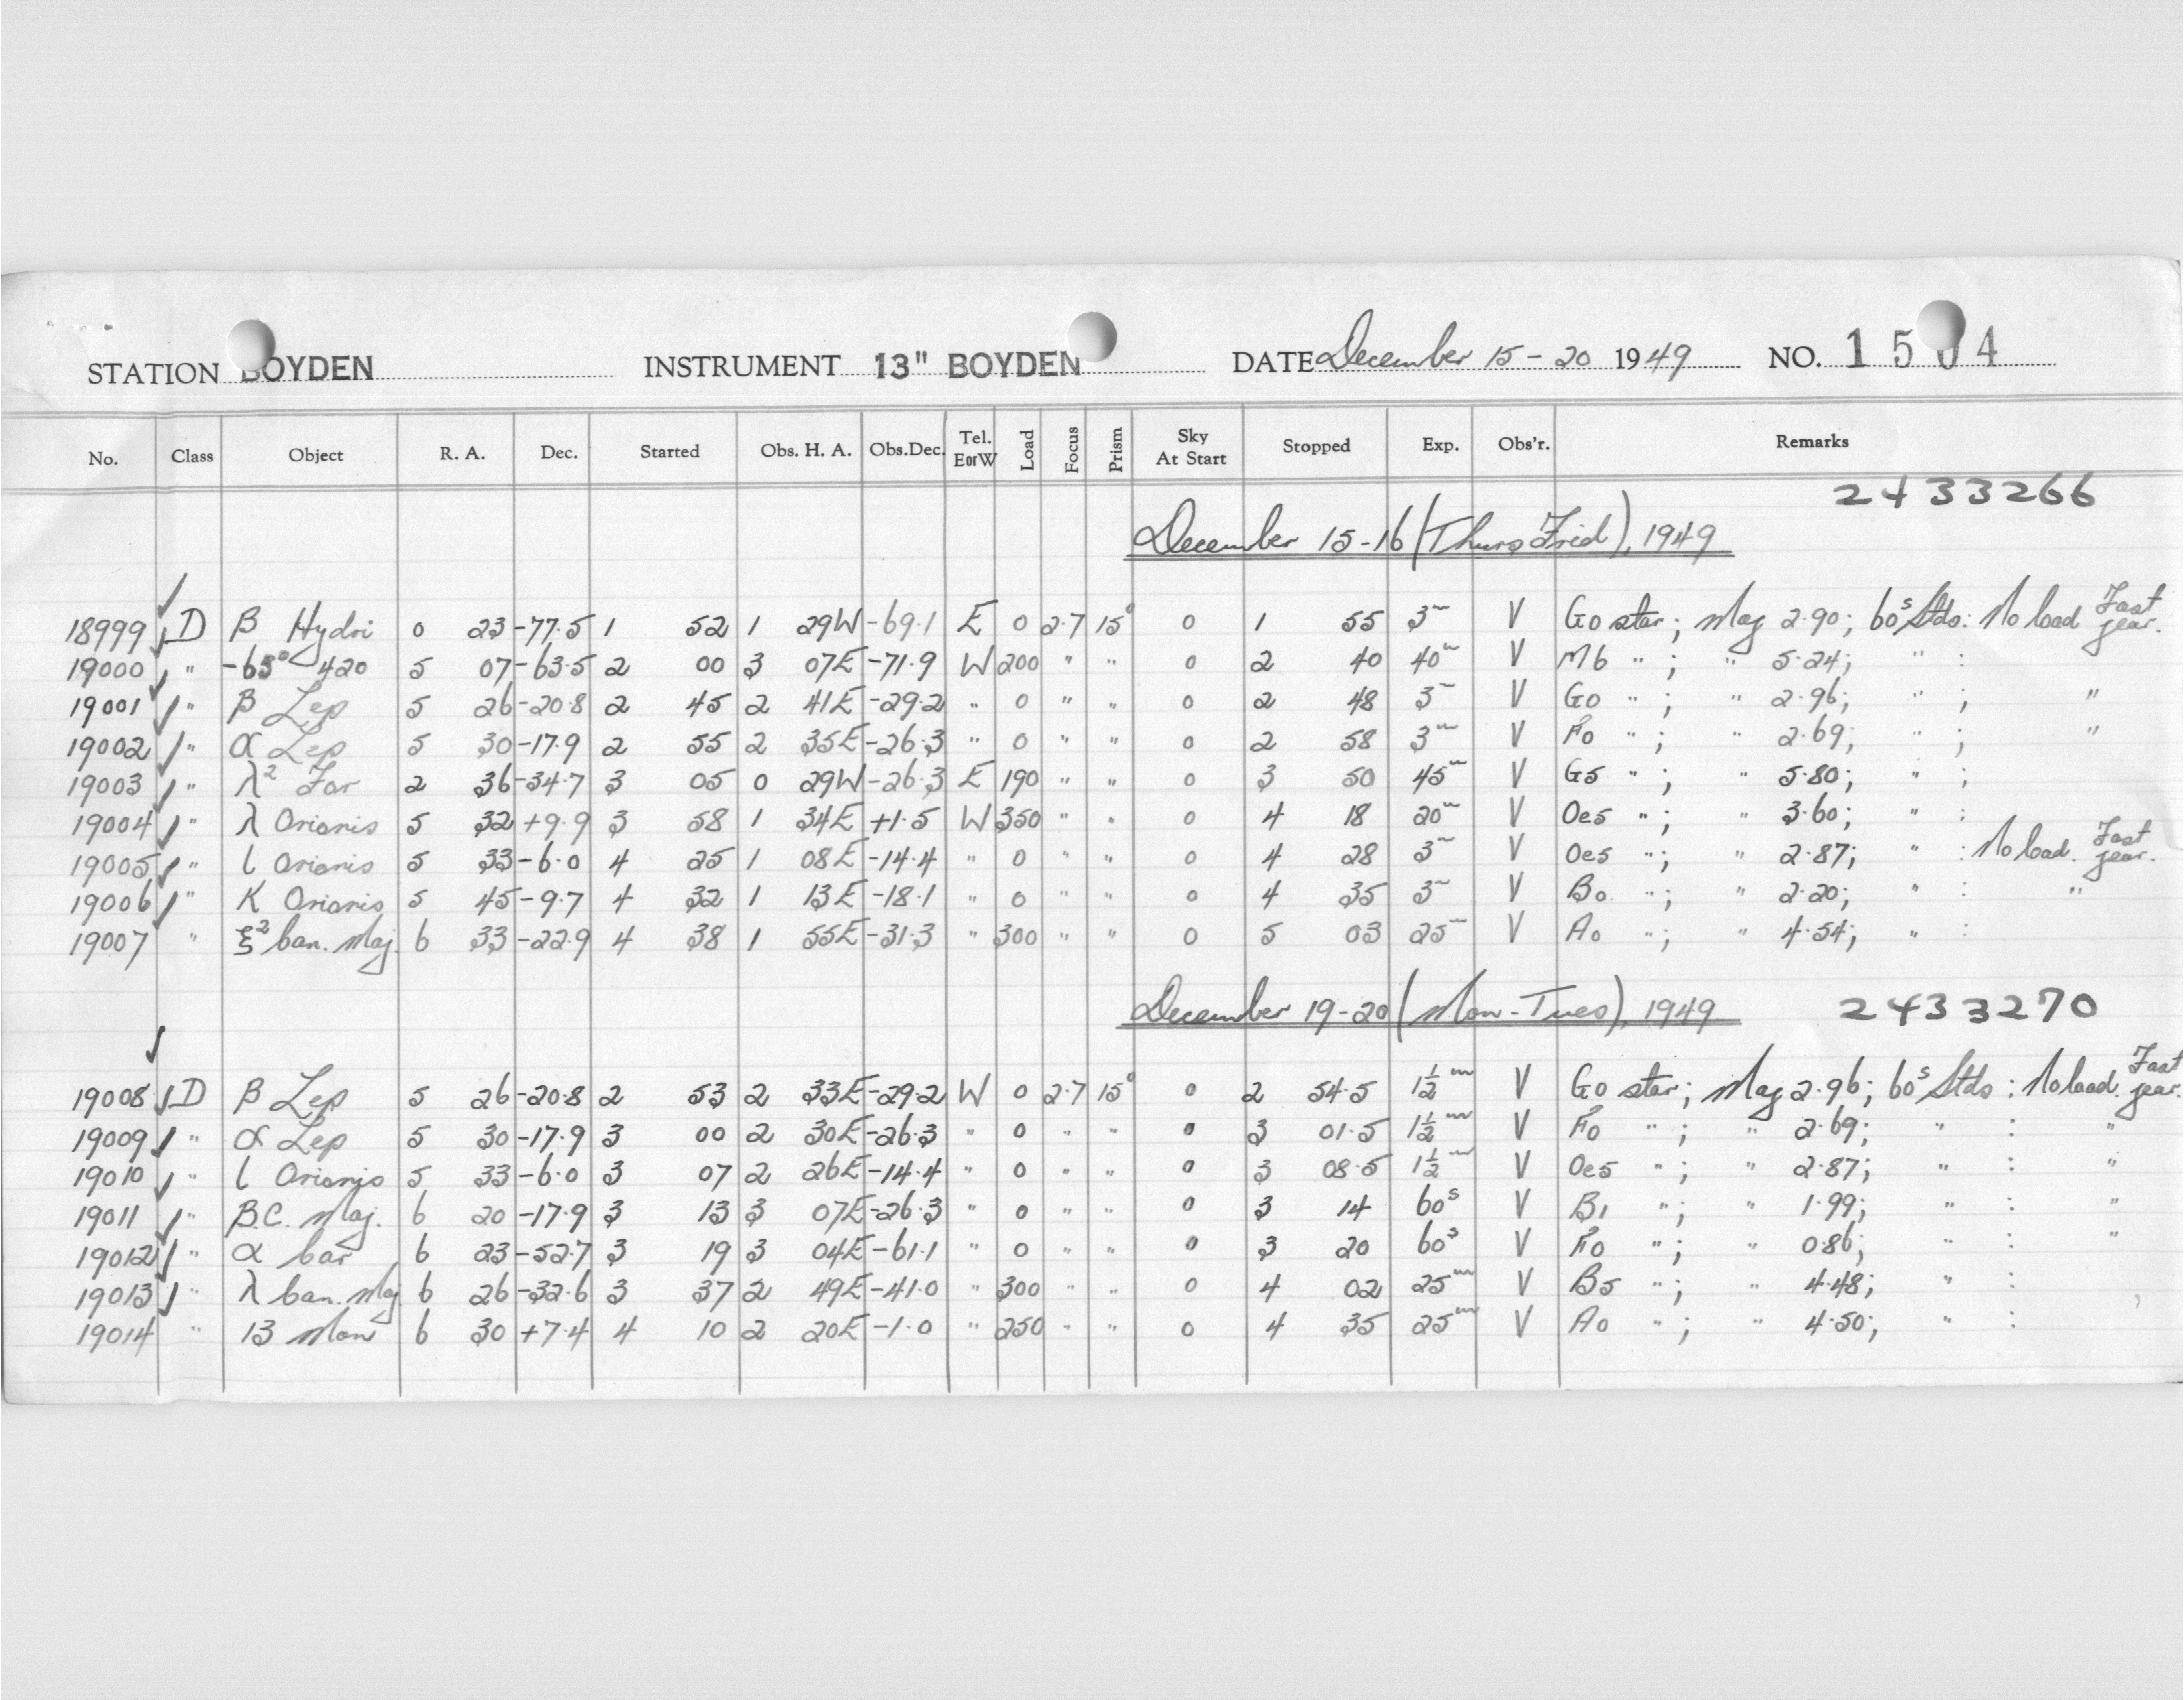 STATION BOYDEN INSTRUMENT 13" BOYDEN DATE December 15-20 1949 NO. 1504
No. Class Object R. A. Dec. Started Obs. H. A. Obs.Dec. Tel. EorW Load Focus Prism Sky At Start Stopped Exp. Obs'r. Remarks
2433266
December 15-16 (Thurs Frid), 1949
18999 D β Hydri 0 23 -77.5 1 52 1 29W -69.1 E 0 2.7 15° 0 1 55 3m V G0 star; Mag 2.90; 60s Stds: No load Fast gear.
19000 " -63° 420 5 07 -63.5 2 00 3 07E -71.9 W 200 " " 0 2 40 40m V M6 "; " 5.24; " :
19001 " β Lep 5 26 -20.8 2 45 2 41E -29.2 " 0 " " 0 2 48 3m V G0 "; " 2.96; " ; "
19002 " α Lep 5 30 -17.9 2 55 2 35E -26.3 " 0 " " 0 2 58 3m V F0 "; " 2.69; " ; "
19003 " λ² For 2 36 -34.7 3 05 0 29W -26.3 E 190 " " 0 3 50 45m V G5 "; " 5.80; " ;
19004 " λ Orionis 5 32 +9.9 3 58 1 34E +1.5 W 350 " " 0 4 18 20m V Oe5 "; " 3.60; " :
19005 " ι Orionis 5 33 -6.0 4 25 1 08E -14.4 " 0 " " 0 4 28 3m V Oe5 "; " 2.87; " : No load. Fast gear.
19006 " K Orionis 5 45 -9.7 4 32 1 13E -18.1 " 0 " " 0 4 35 3m V B0 "; " 2.20; " : "
19007 " ξ² Can. Maj. 6 33 -22.9 4 38 1 55E -31.3 " 300 " " 0 5 03 25m V A0 "; " 4.54; " :
December 19-20 (Mon-Tues), 1949 2433270
19008 D β Lep 5 26 -20.8 2 53 2 33E -29.2 W 0 2.7 15° 0 2 54.5 1½m V G0 star; Mag 2.96; 60s Stds: No load. Fast gear.
19009 " α Lep 5 30 -17.9 3 00 2 30E -26.3 " 0 " " 0 3 01.5 1½m V F0 "; " 2.69; " : "
19010 " ι Orionis 5 33 -6.0 3 07 2 26E -14.4 " 0 " " 0 3 08.5 1½m V Oe5 "; " 2.87; " : "
19011 " β.C. Maj. 6 20 -17.9 3 13 3 07E -26.3 " 0 " " 0 3 14 60s V B1 "; " 1.99; " : "
19012 " α Car 6 23 -52.7 3 19 3 04E -61.1 " 0 " " 0 3 20 60s V F0 "; " 0.86; " : "
19013 " λ Can. Maj 6 26 -32.6 3 37 2 49E -41.0 " 300 " " 0 4 02 25m V B5 "; " 4.48; " :
19014 " 13 Mon 6 30 +7.4 4 10 2 20E -1.0 " 250 " " 0 4 35 25m V A0 "; " 4.50; " :